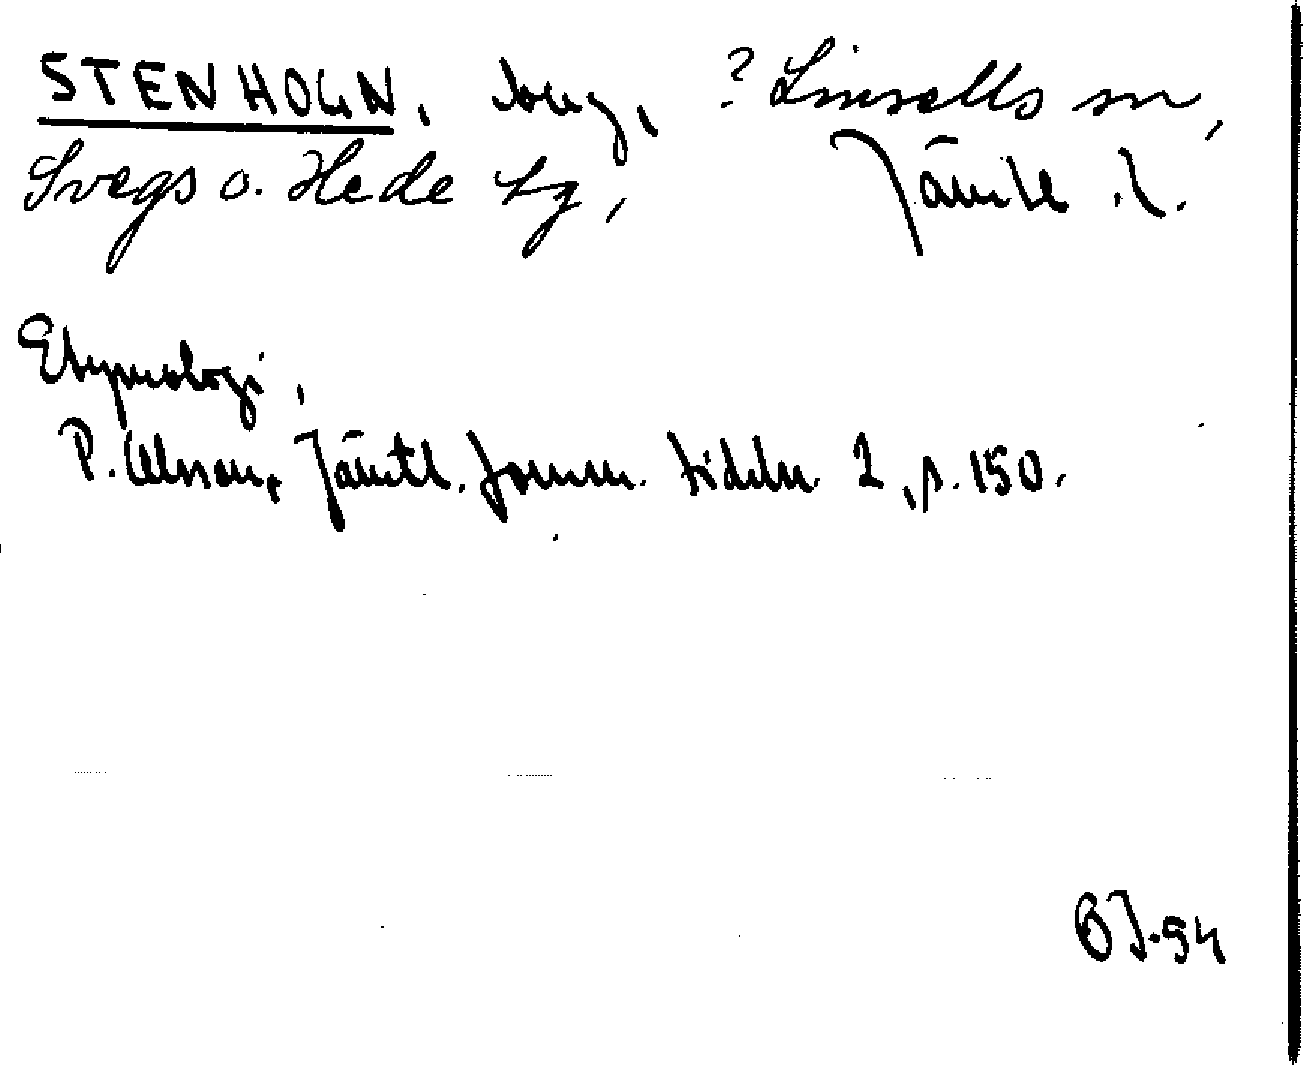 STENHOGN, berg, ? Linsells sn,
Svegs o. Hede tg, Jämtl. l.
Etymologi,
P. Olsson, Jämtl. fornm. tidskr. 2, s. 150.
OJ-54